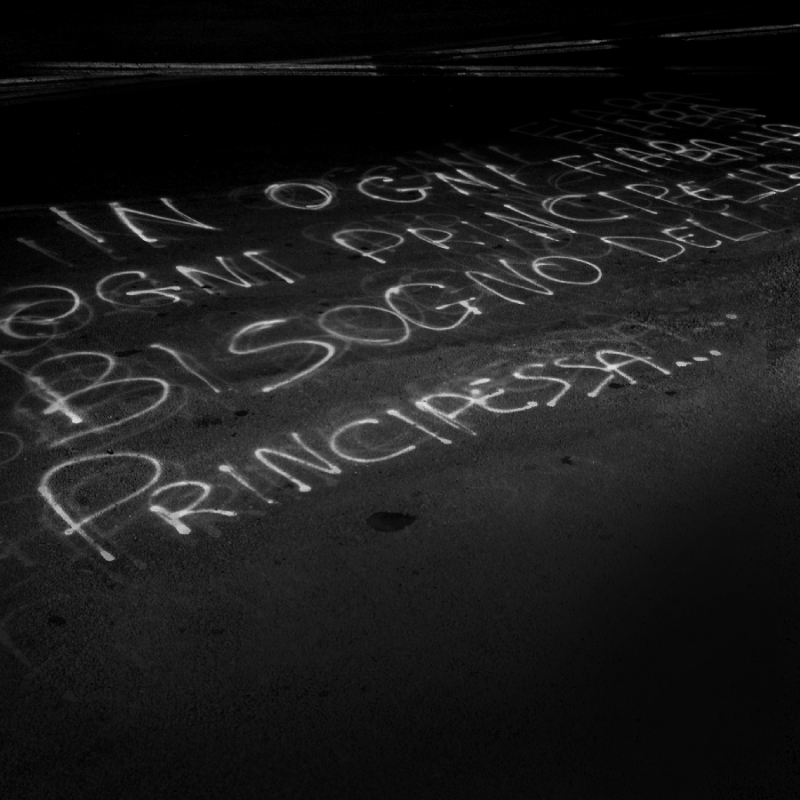 IN OGNI FIABA
OGNI PRINCIPE HA
BISOGNO DELLA
PRINCIPESSA...